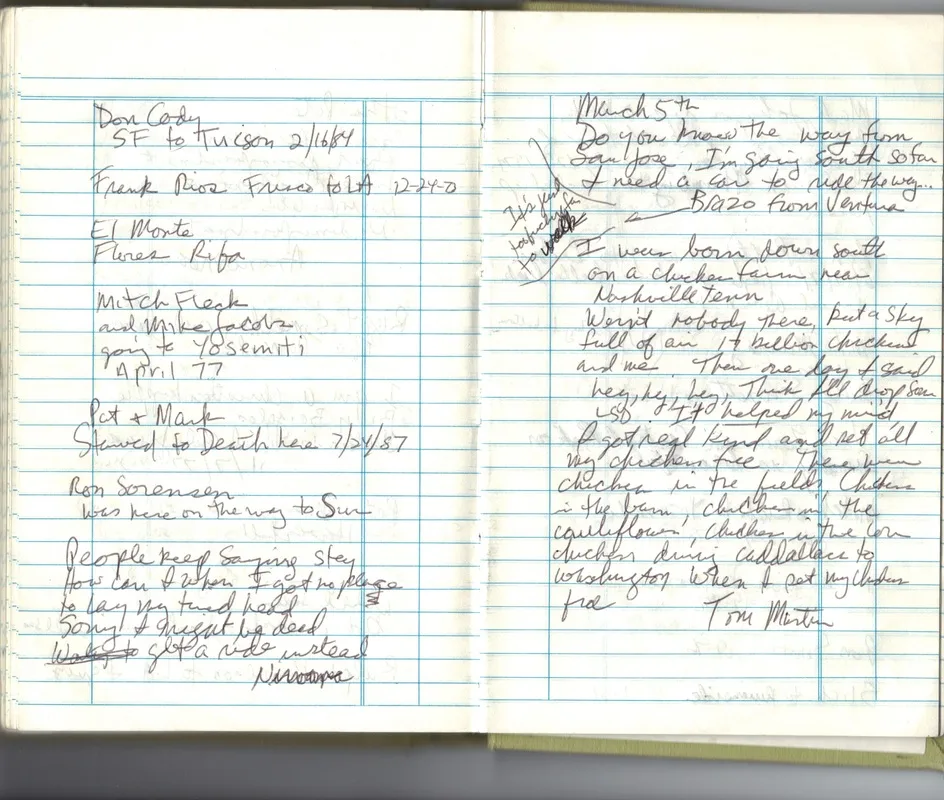 Don Cody
SF to Tucson 2/16/84
Frank Rios Frisco to LA 12-24-0
El Monte
Flores Rifa
Mitch Fleck
and Mike Jacobs
going to Yosemiti
April 77
Pat + Mark
Starved to Death here 7/24/87
Ron Sorensen
was here on the way to Sun
People keep saying stay
How can I when I got no place
to lay my tired head
Sorry I might be dead
get a ride instead
March 5th
Do you know the way from
San Jose, I'm going south so far
I need a car to ride the way...
It's kind
to
to walk
Brazo from Ventura
I was born down south
on a chicken farm near
Nashville Tenn
Wern't nobody there, but a sky
full of air 17 billion chickens
and me. Then one day I said
hey, hey, hey, Think I'll drop some
LSD. It helped my mind
I got real kind and set all
my chickens free. There were
chicken in the fields, chickens
in the barn, chicken in the
cauliflower, chicken in the corn
chickens driving caddallacs to
Washington when I set my chickens
free
Tom Martin